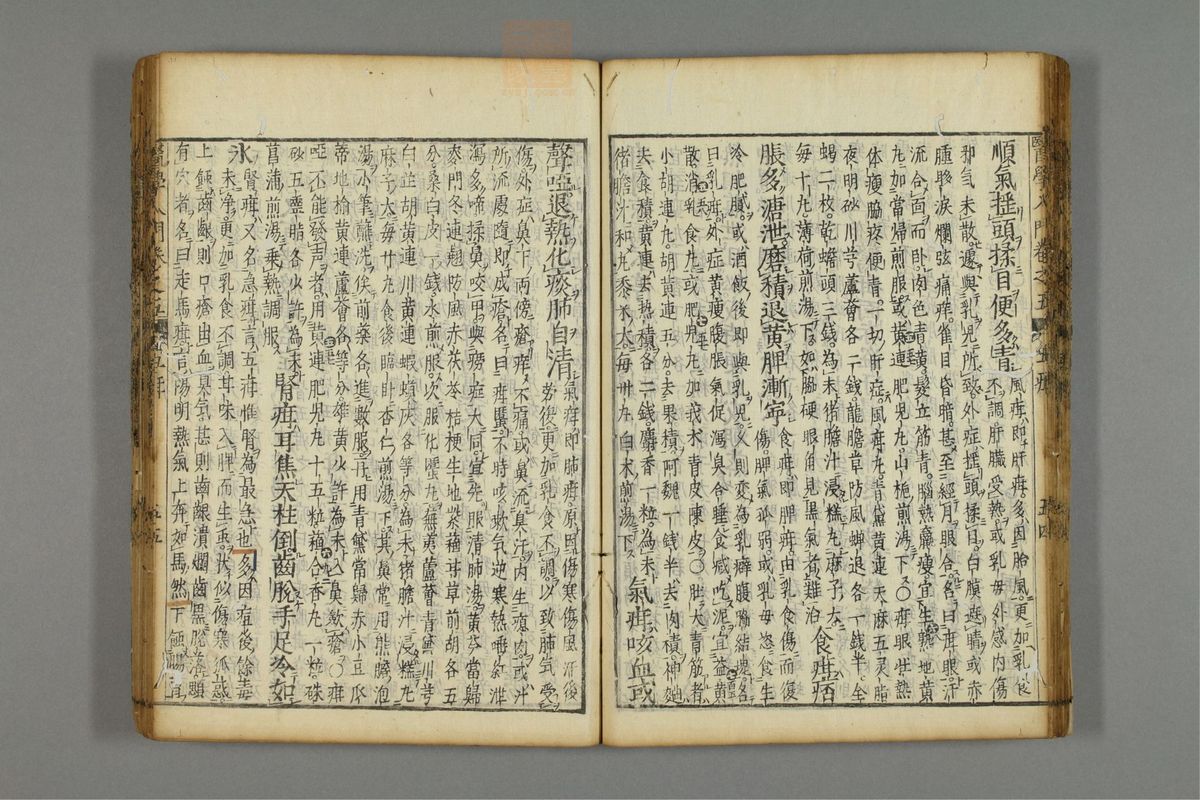 順氣揺頭揉目便多青風疳即肝疳多因胎風更加乳食
不調肝臟受熱或乳母外感內傷
邪气未散遽與乳兒所致外症揺頭揉目白膜遮睛或赤
腫眵淚爛弦痛痒雀目昏暗甚至經月眼合名曰疳眼汗
流合面而卧肉色青黄髮立筋青腦熱羸瘦宜生熟地黄
丸加當歸煎服或黄連肥兒丸山梔煎湯下〇疳眼出熱
体瘦腦疼便青一切肝症風疳丸青黛黄連天麻五灵脂
夜明砂川芎蘆薈各二錢龍膽草防風蟬退各一錢半全
蝎二枚乾蟾頭三錢為末猪膽汁浸糕丸麻子大
每十丸薄荷煎湯下如腦硬眼角見黒氣者難治食疳疳
脹多溏泄磨積退黄脾漸寧食疳即脾疳由乳食傷而後
傷脾氣或乳母恣食生
冷肥膩或酒飯後即與乳兒久則変為乳癖腹腦結塊名
曰乳疳外症黄瘦腹脹氣促瀉臭合睡食或吃泥宜益黄
散消乳食丸或肥兒丸加莪朮青皮陳皮〇肚大青筋者
小胡連丸胡黄連五分去果積阿魏一錢半去肉積神麯
去食積黄連去熱積各二錢麝香一粒為末
猪膽汁和丸黍米大每卄丸白朮煎湯下氣疳咳血或
聲啞退熱化痰肺自清氣疳即肺疳原因傷寒傷風汗後
勞復更加乳食不調以致肺氣受
傷外症鼻下兩傍瘡痒不痛或鼻流臭汗內生瘜肉或汁
所流處隨即成瘡名曰疳䘌不時咳嗽气逆寒熱唾紅泄
瀉多啼揉鼻咬甲與癆症大同宜先服清肺湯黄芩當歸
麥門冬連翹防風赤茯苓桔梗生地紫蘓甘草前胡各五
分桑白皮一錢水煎服次服化䘌丸蕪荑蘆薈青黛川芎
白芷胡黄連川黄連蝦蟆灰各等分為末猪膽汁浸糕丸
麻子大每卄丸食後臨卧杏仁煎湯下其鼻常用熊膽泡
湯小筆蘸洗俟前薬各進數服再用青黛當歸赤小豆瓜
蒂地榆黄連蘆薈各等分雄黄少許為末入鼻歛瘡〇疳
啞不能發声者用黄連肥兒丸十五粒蘓合香丸一粒硃
砂五靈脂各少許為末
菖蒲煎湯乗熱調服腎疳耳焦天柱倒齒脫手足冷如
氷腎疳又名急疳言五疳惟腎為最急也多因疳後餘毒
未净更加乳食不調甘味入脾而生虫狀似傷寒狐惑
上蝕齒齦則口瘡出血臭气甚則齒齦潰爛齒黒脫落頤
有穴者名曰走馬疳言陽明熱氣上奔如馬然下蝕腸胃